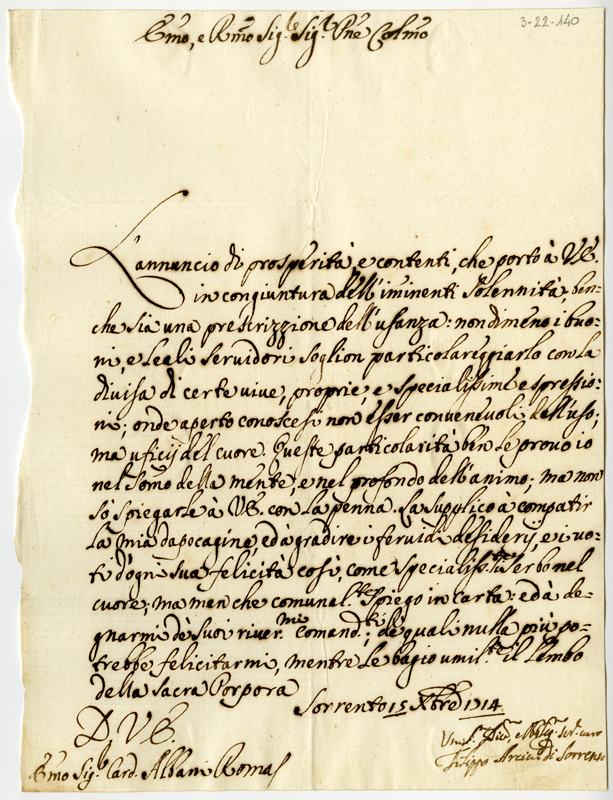 3-22-140
Emo, e Rmo Sig.r Sig.r Pne Colmo
L'annuncio di prosperità, e contenti, che porto à V.E.
in congiuntura dell'imminenti Solennità, ben-
che sia una prescrizzione dell'usanza: nondimeno i buo-
ni, e leali servidori soglion particolareggiarlo con la
divisa di certe vive, proprie, e specialissime espressio-
ni; onde aperto conoscesi non esser convenevoli dell'uso;
ma uficij del cuore. Queste particolarità ben le provo io
nel somo della mente, e nel profondo dell'animo; ma non
sò spiegarle à V.E. con la penna. La supplico à compatir
la mia dapocagine, ed à gradire i fervidi desiderij, e i vo-
ti d'ogni sua felicità così, come specialiss.te serbo nel
cuore; ma men che comunal.te spiego in carta: ed à de-
gnarmi de suoi river.mi comand.ti; de quali nulla più po-
trebbe felicitarmi, mentre le bagio umil.te il lembo
della Sacra Porpora
Sorrento 15 Xbre 1714
D. V. E.
Umil.
Filippo Arciv.o di Sorrento
Emo Sig.r Card. Albani Roma